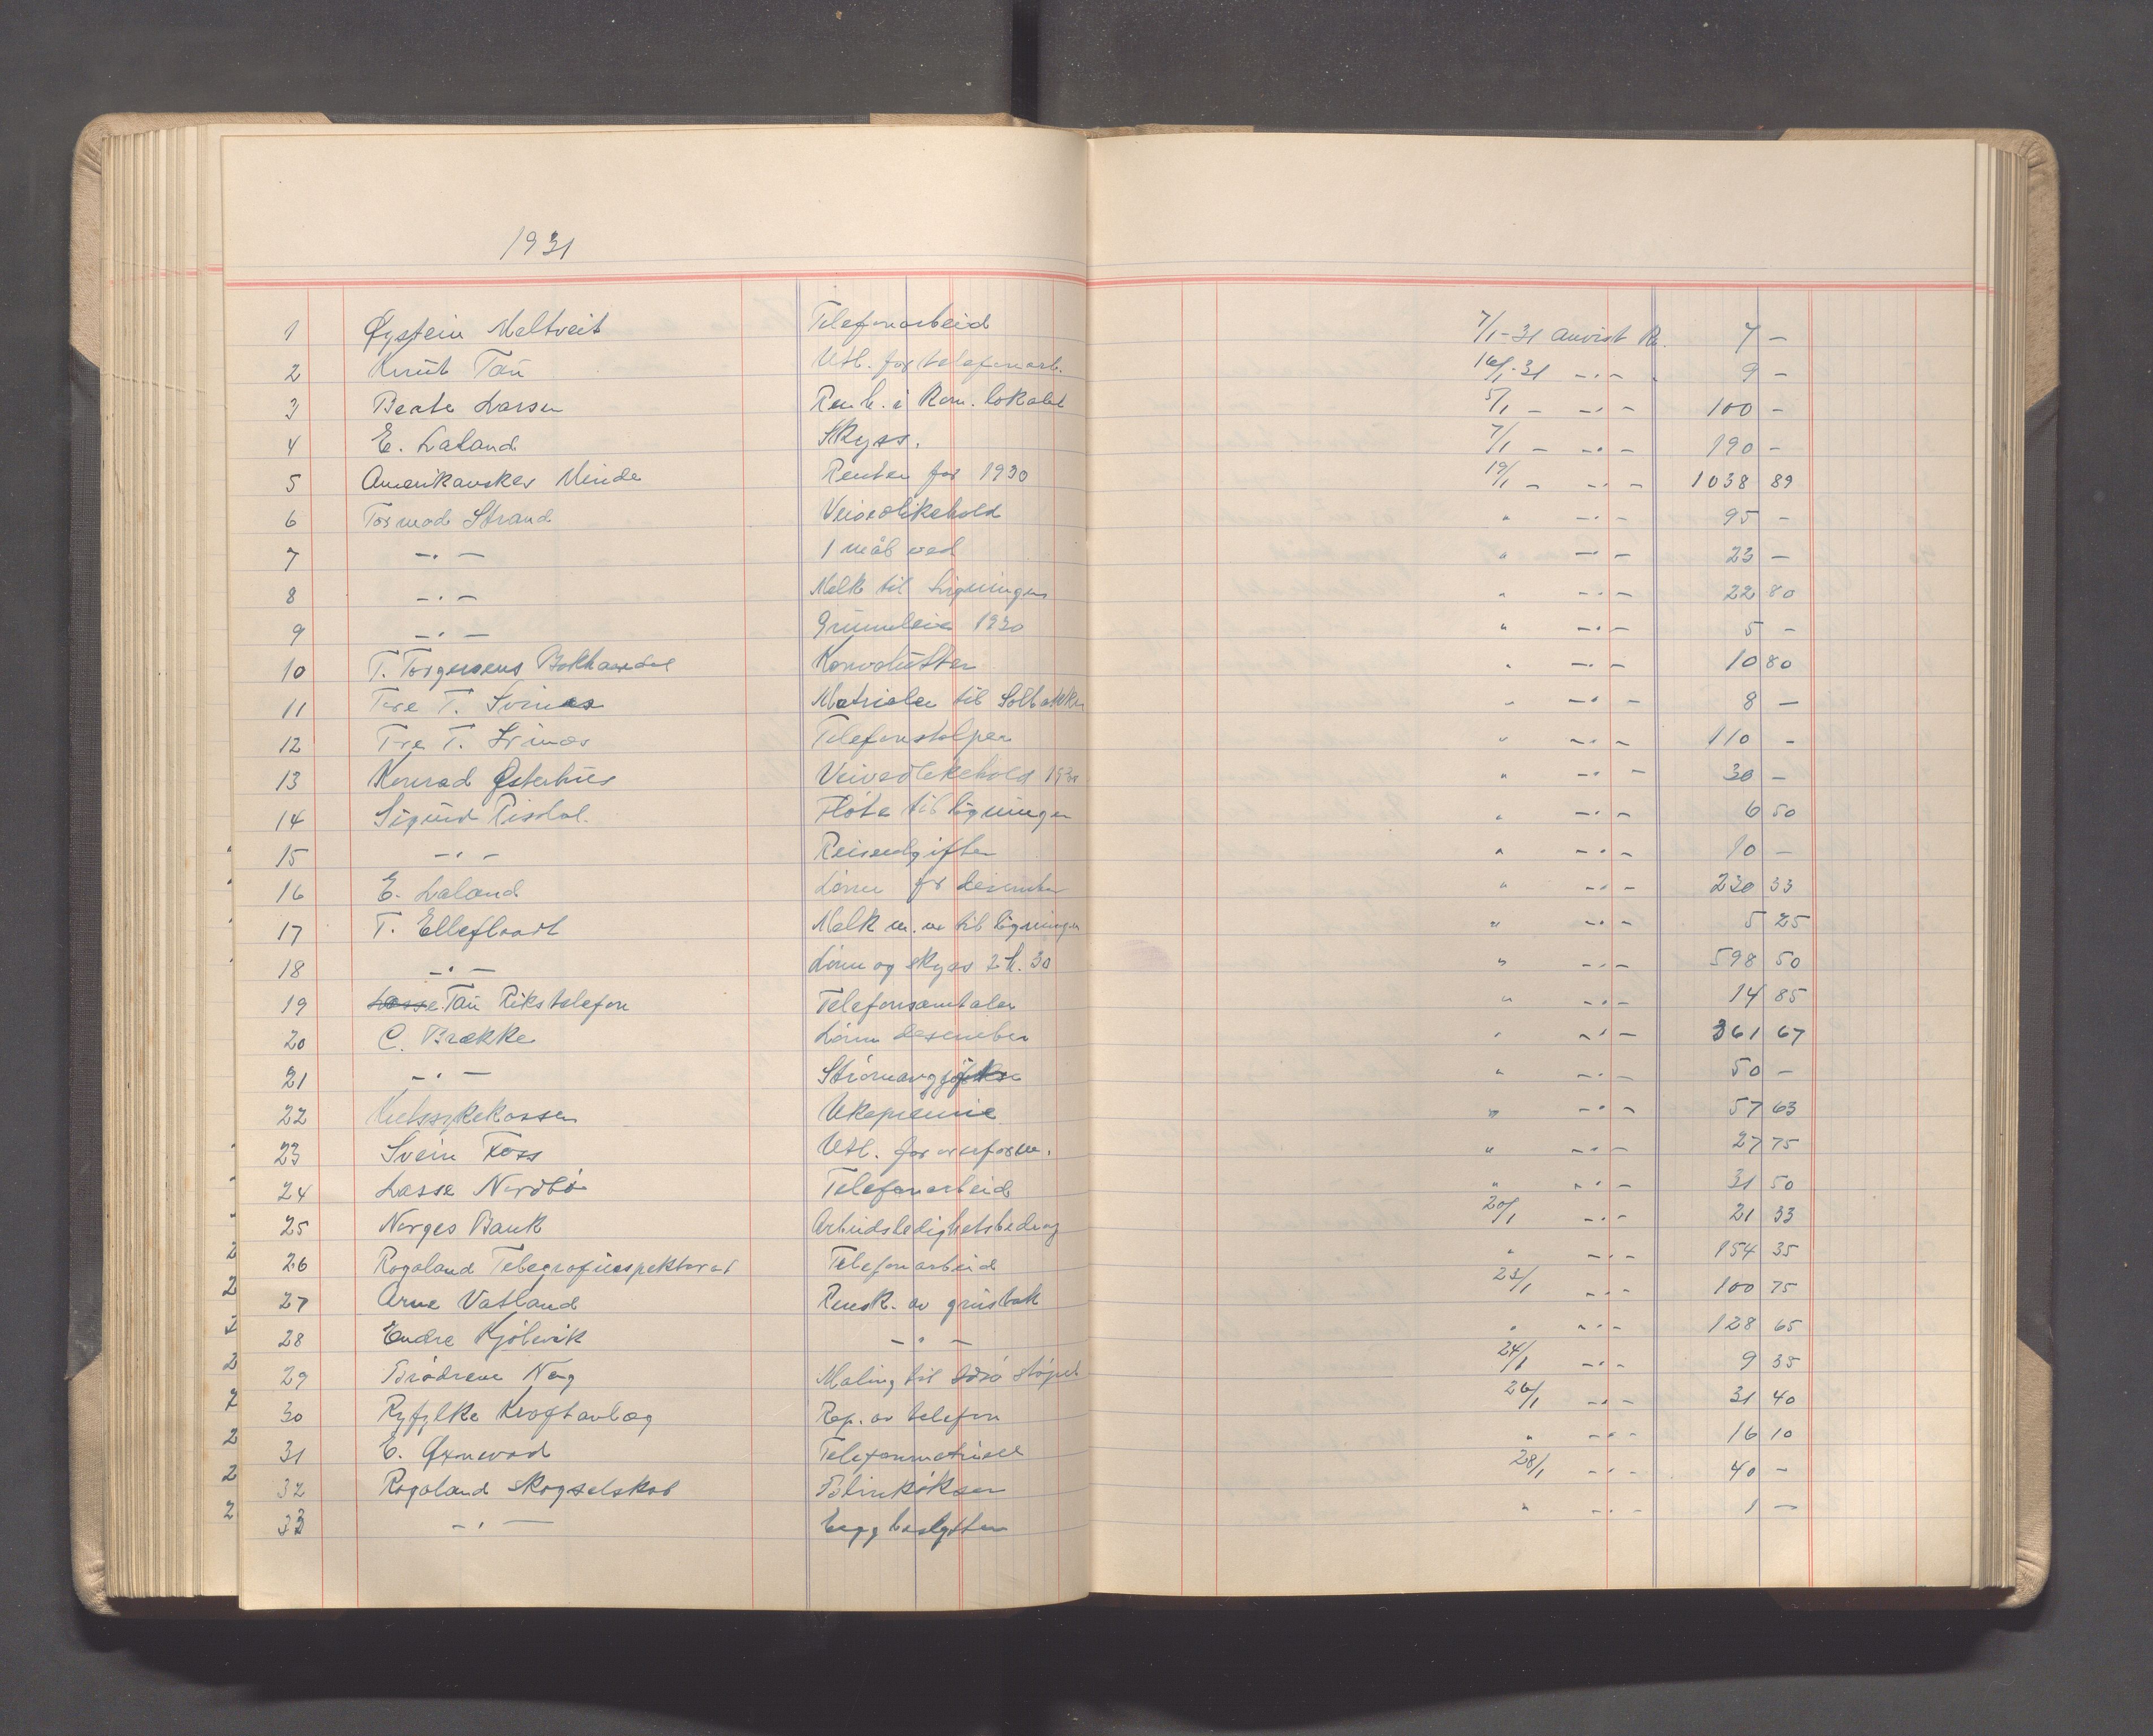 1931
1 Øystein Meltveit Telefonarbeid 7/1-31 anvist Kr. 7 –
2 Knut Tau Utl. for telefonarb. 16/1-31 –"– 9 –
3 Beate Larsen Renh. i Kom. lokalet 5/1 – –"– 100 –
4 E. Laland Skyss. 7/1 – –"– 190 –
5 Amerikanskes Minde Renter for 1930 19/1 – –"– 1038 89
6 Tormod Strand Veivedlikehold " –"– 95 –
7 –"– 1 mål ved " –"– 23 –
8 –"– Melk til Ligningen " –"– 22 80
9 –"– Grunnleie 1930 " –"– 5 –
10 T. Torgersens Bokhandel Konvolutter " –"– 10 80
11 Tore T. Svines Matrialer til Solbakken " –"– 8 –
12 Tore T. Svines Telefonstolper " –"– 110 –
13 Konrad Østerhus Veivedlikehold 1930 " –"– 30 –
14 Sigurd Risdal. Fløte til ligningen " –"– 6 50
15 –"– Reiseutgifter " –"– 10 –
16 E. Laland Lønn for desember " –"– 230 33
17 T. Ellefloodt Melk m. m til ligningen " –"– 5 25
18 –"– Lønn og skyss 2 h. 30 " –"– 598 50
19 Lasse Tau Rikstelefon Telefonsamtaler " –"– 14 85
20 C. Brække Lønn desember " –"– 361 67
21 –"– " –"– 50 –
22 Kretssykekassen Ukepremie " –"– 57 63
23 Svein Foss Utl. for " –"– 27 75
24 Lasse Nordbø Telefonarbeid " –"– 31 50
25 Norges Bank Arbeidsledighetsbedrag 20/1 –"– 21 33
26 Rogaland Telegrafinspektorat Telefonarbeid " –"– 154 35
27 Arne Vatland Rensk. av grustak 23/1 –"– 100 75
28 Endre Kjølevik –"– " –"– 128 65
29 Brødrene Nag Maling til 24/1 –"– 9 35
30 Ryfylke Kraftanlæg Rep. av telefon 26/1 –"– 31 40
31 E. Øxnevad Telefonmatriell " –"– 16 10
32 Rogaland Skogselskab Blinkøkser 28/1 –"– 40 –
33 –"– " –"– 1 –